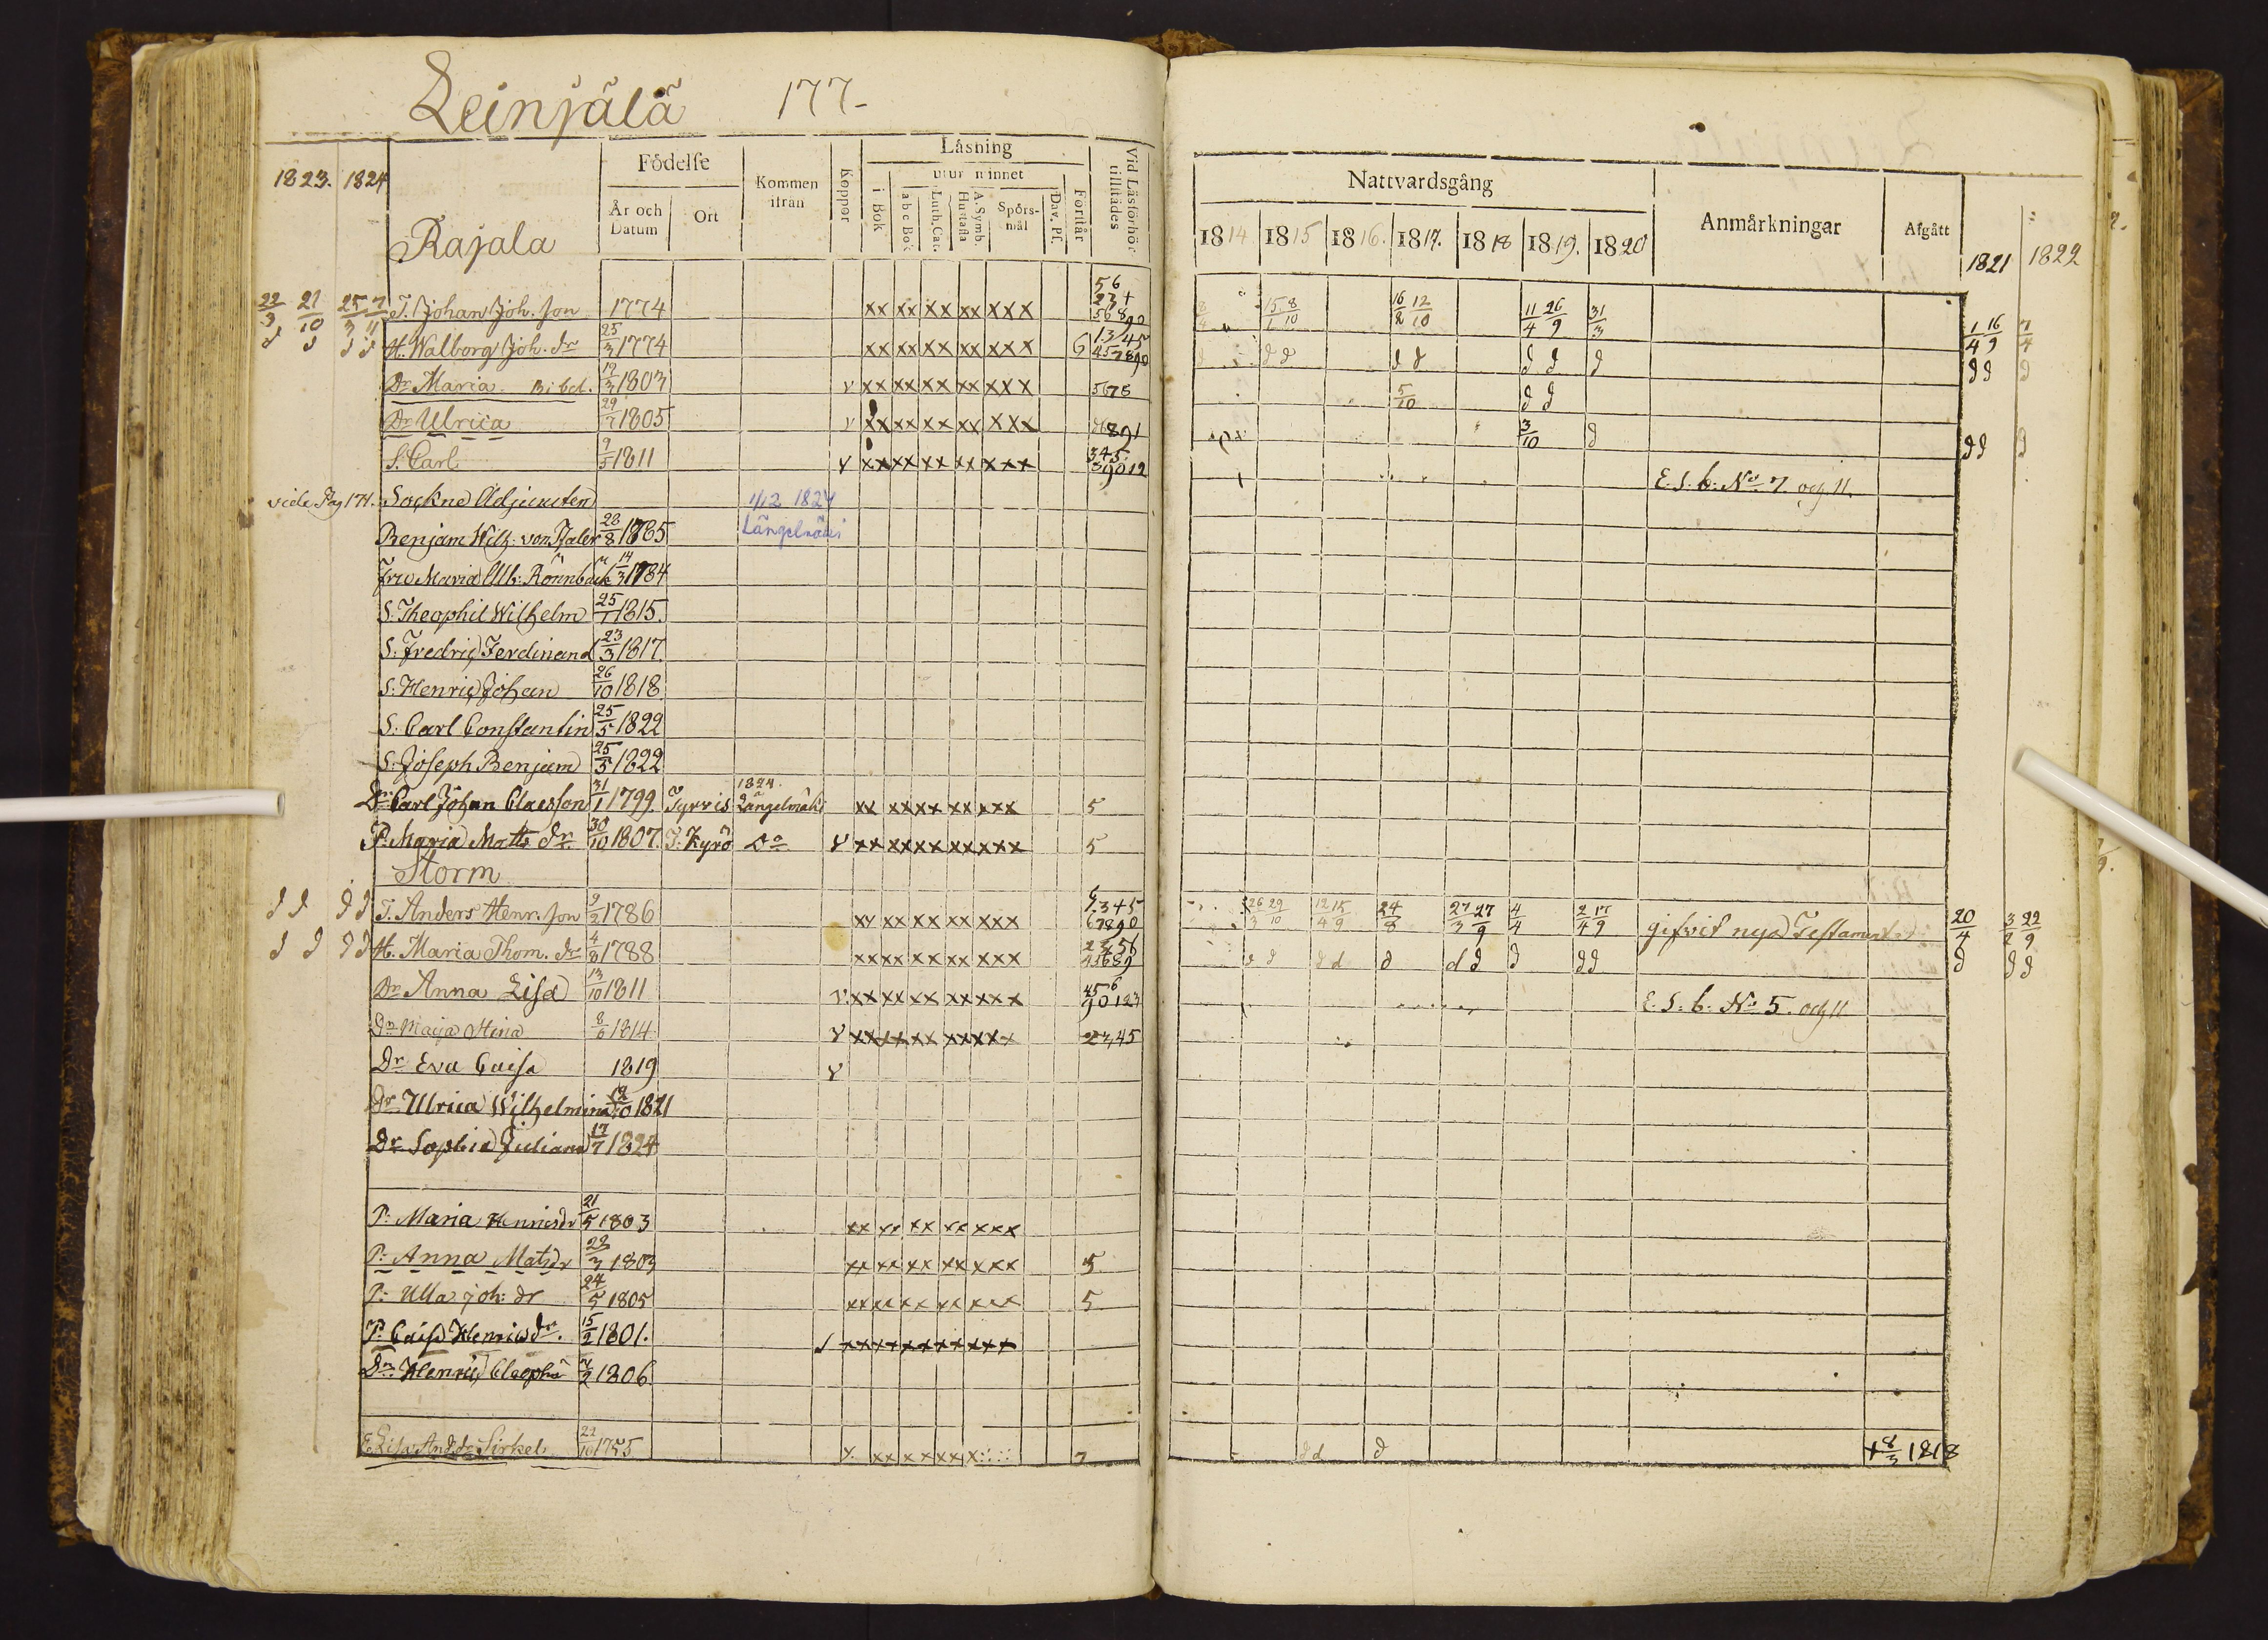 Leinjälä 177-
1823. 1824
Födelse
År och Datum
Ort
Kommen ifrån
Koppor
Läsning
i Bok
utur minnet
a b c Bok
Luth. Cat.
A. Symb. Hustafla
Spörsmål
Dav. Pf.
Förstår
Vid Läsförhör tillstädes
Nattvardsgång
1814 1815 1816. 1817. 1818 1819. 1820
Anmärkningar
Afgått
1821 1822
Rajala
22/3 21/10 25/3 7/11 T. Johan Joh. son 1774 xx xx xx xx xxx 15/1 8/10 16/2 12/10 11/4 26/9 31/3 1/4 16/9 7/4
d d d d H. Walborg Joh. dr 25/3 1774 xx xx xx xx xxx 6 d d d d d d d d d d
Dr Maria 19/3 1803 v xx xx xx xx xxx 5678 5/10 d d
Dr Ulrica 29/7 1805 v xx xx xx xx xxx 3/10 d d d d
S. Carl 9/5 1811 v xx xx xx xx xxx 345 39012 E. S. b: No 7. och 11.
vide Pag 171. Sockne Adjuncten 1/12 1824
Benjam Wilh: von 28/8 1785 Längelmäki
Fru Maria Ulb: Rönnback 14/3 1784
S: Theophil Wilhelm 25/1 1815.
S: Fredric Ferdinand 23/3 1817.
S: Henric Johan 26/10 1818
S: Carl Constantin 25/5 1822
S: Joseph Benjam 25/5 1822
Dr Carl Johan Claesson 31/1 1799. Tyrvis 1824. Längelmäki xx xx xx xx xxx 5
P: Maria Matts dr 30/10 1807. T: Kyrö Do v xx xx xx xx xxx 5
Storm
d d d d T. Anders Henr. son 9/2 1786 xx xx xx xx xxx 2345 67890 26/3 29/10 12/4 15/9 24/8 27/3 27/9 4/4 2/4 17/9 gifvit nya Testamentet 20/4 3/2 22/9
d d d d H. Maria Thom. dr 4/8 1788 xx xx xx xx xxx d d d d d d d d d d d d d
Dr Anna Lisa 13/10 1811 v xx xx xx xx xxx 456 90123 E. S: b: No 5. och 11
Dr Maija Stina 8/6 1814 v xx xx xx xx xxx 23,45
Dr Eva Caisa 1819 v
Dr Ulrica Wilhelmina 12/10 1821
Dr Sophia Juliana 17/7 1824
P: Maria Henricsdr 21/5 1803 xx xx xx xx xxx
P: Anna Matsdr 28/3 1803 xx xx xx xx xxx 5
P: Ulla Joh: dr 24/5 1805 xx xx xx xx xxx 5
P: Caisa Henricsdr. 15/2 1801. xx xx xx xx xxx
Dr Henric 1806.
E. Lisa And. dr Sirkel 22/10 1755 v. xx xx xx x 7 d d d + 8/3 1818